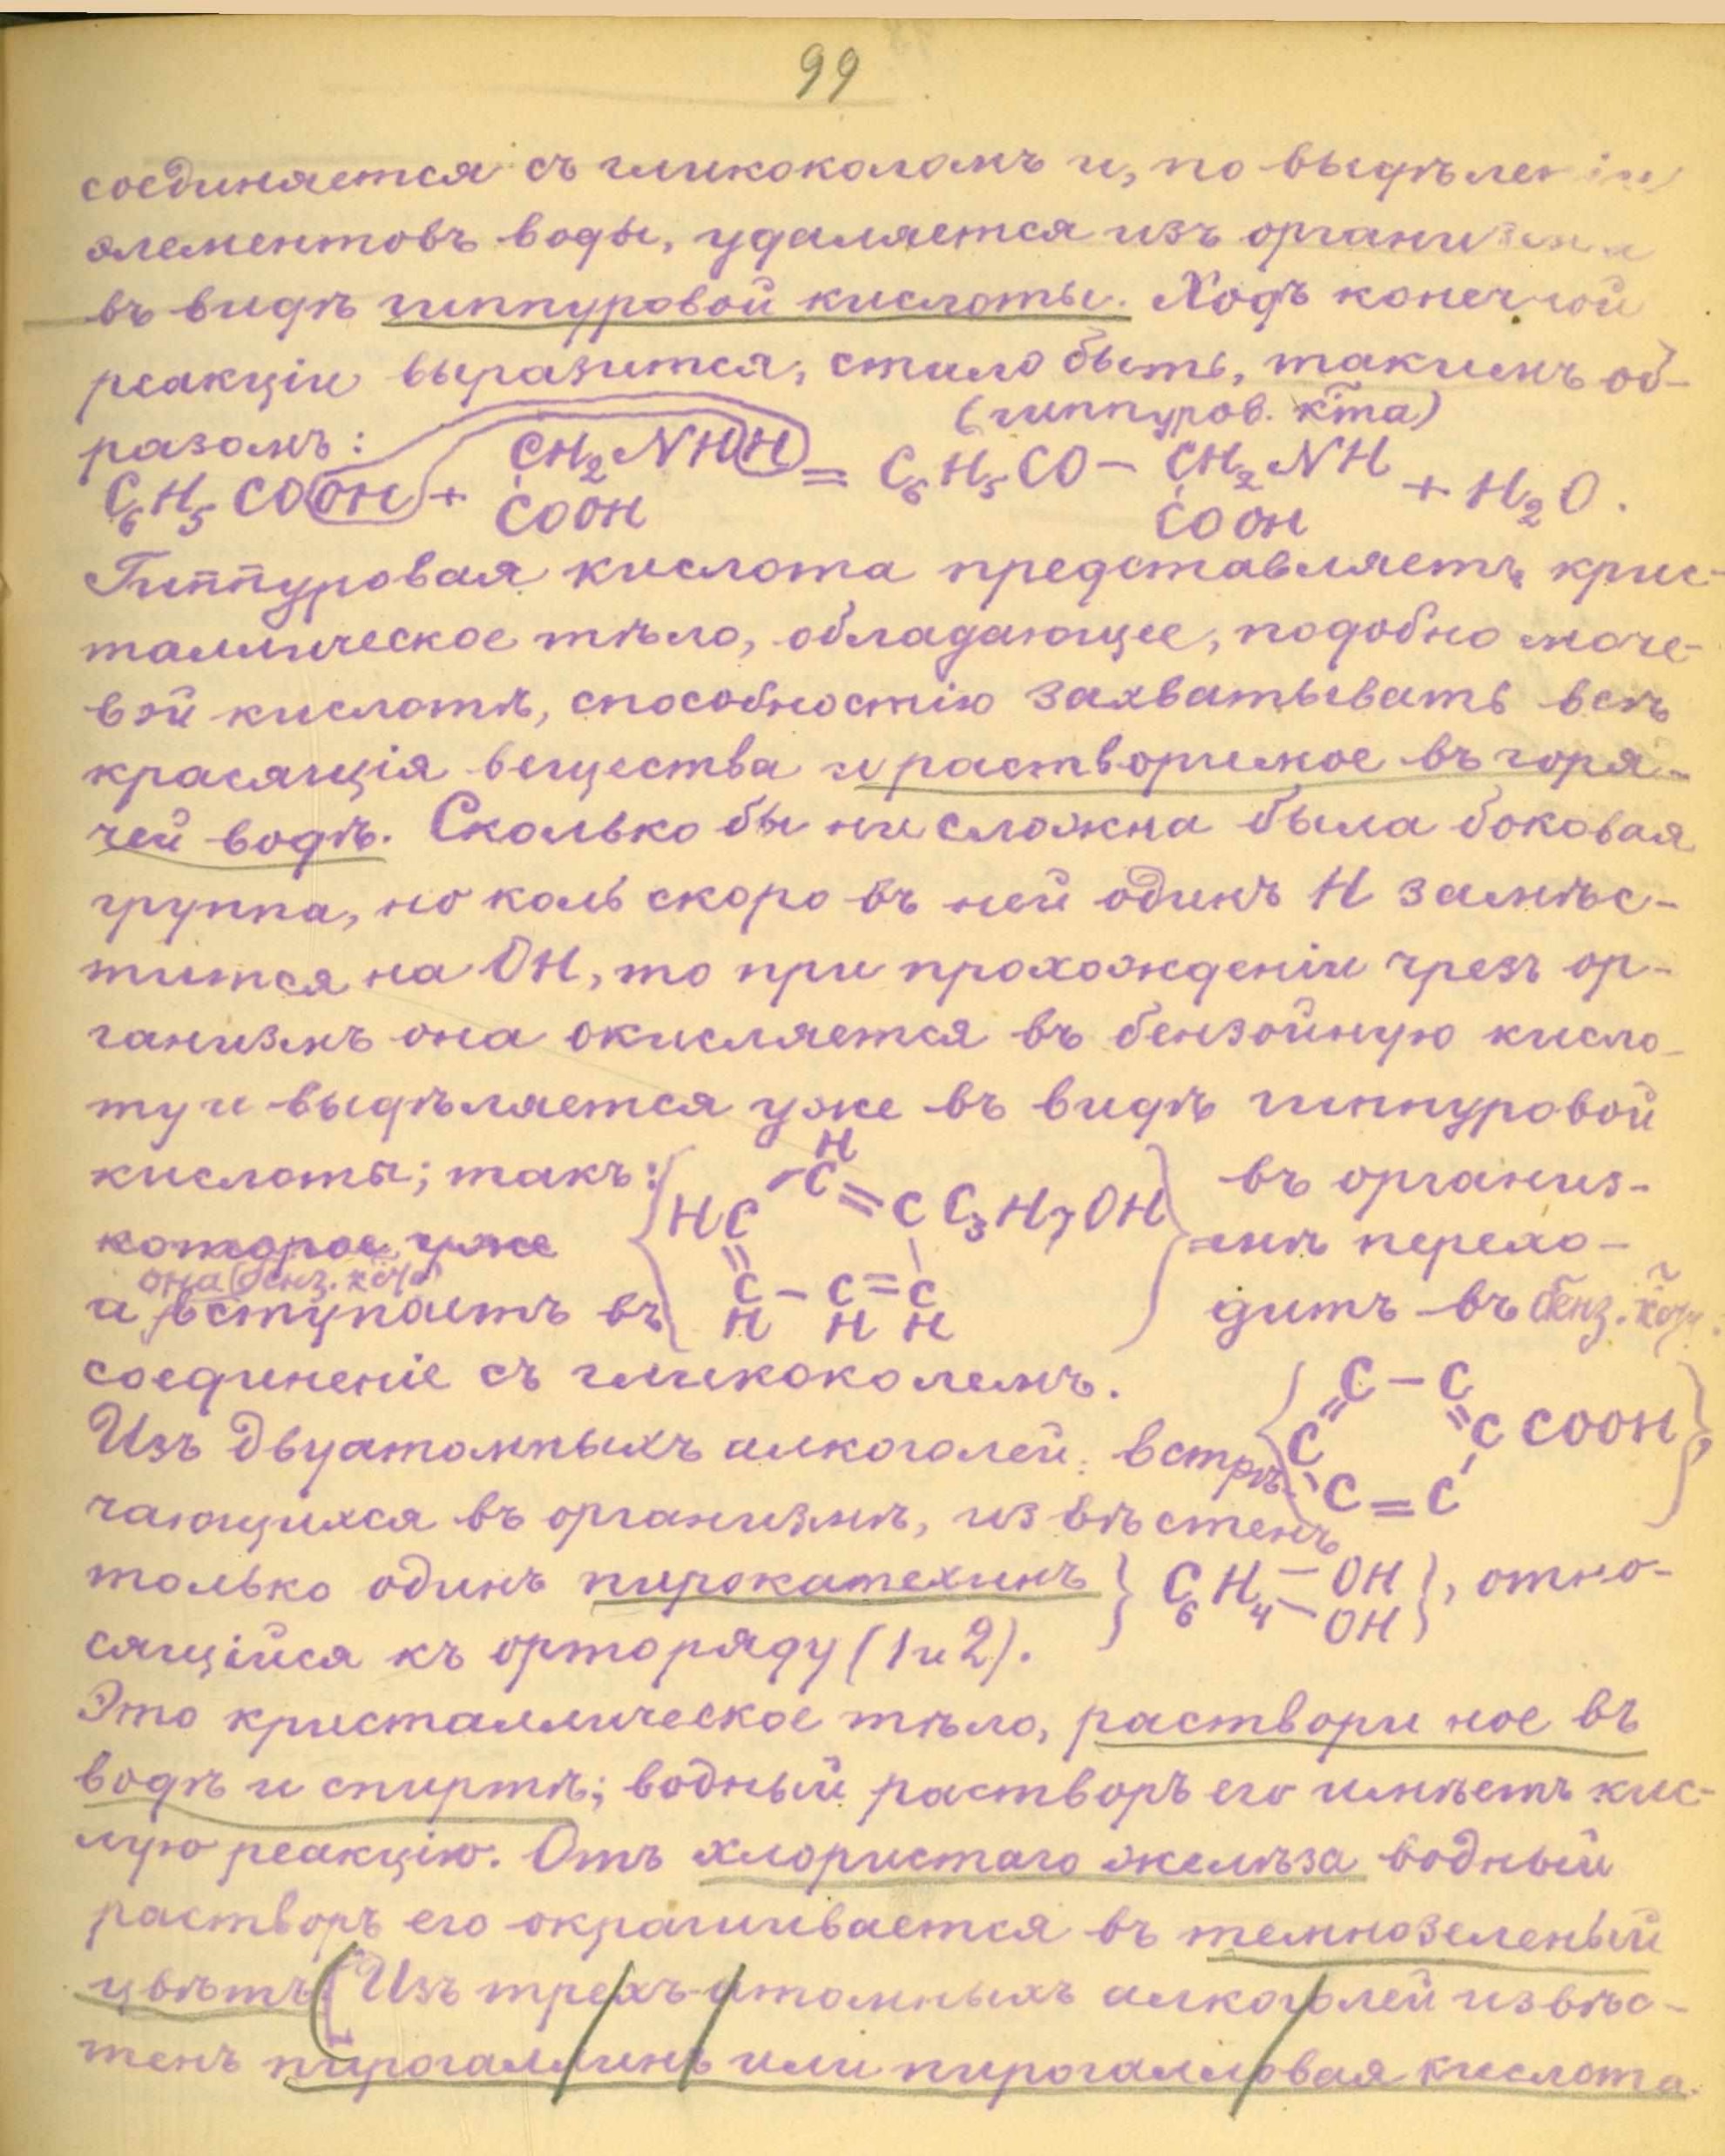 99
соединяется съ гликоколомъ и, по выдѣленіи
элементовъ воды, удаляется изъ организма
въ видѣ гиппуровой кислоты. Ходъ конечной
реакціи выразится, стало быть, такимъ об-
разомъ:
(гиппуров. к̃та)
C₆H₅COOH + CH₂NHH = C₆H₅CO – CH₂NH + H₂O.
COOH COOH
Гиппуровая кислота представляетъ крис-
таллическое тѣло, обладающее, подобно моче-
вой кислотѣ, способностію захватывать всѣ
красящія вещества и растворимое въ горя-
чей водѣ. Сколько бы ни сложна была боковая
группа, но коль скоро въ ней одинъ H замѣс-
тится на OH, то при прохожденіи чрезъ ор-
ганизмъ она окисляется въ бензойную кисло-
ту и выдѣляется уже въ видѣ гиппуровой
кислоты; такъ: { H
C
HC = C C₃H₇OH
C – C = C
H H H } въ организ-
мѣ перехо-
дитъ въ бенз. к̃оту:
которое уже
она (бенз. к̃ота)
а вступаетъ въ
соединеніе съ гликоколемъ.
{ C – C
C = C COOH
C = C };
Изъ двуатомныхъ алкоголей, встрѣ-
чающихся въ организмѣ, извѣстенъ
только одинъ пирокатехинъ } C₆H₄ = OH
OH }, отно-
сящійся къ орторяду (1 и 2).
Это кристаллическое тѣло, растворимое въ
водѣ и спиртѣ; водный растворъ его имѣетъ кис-
лую реакцію. Отъ хлористаго желѣза водный
растворъ его окрашивается въ темнозеленый
цвѣтъ. [Изъ трехъ-атомныхъ алкоголей извѣс-
тенъ пирогаллинъ или пирогалловая кислота.